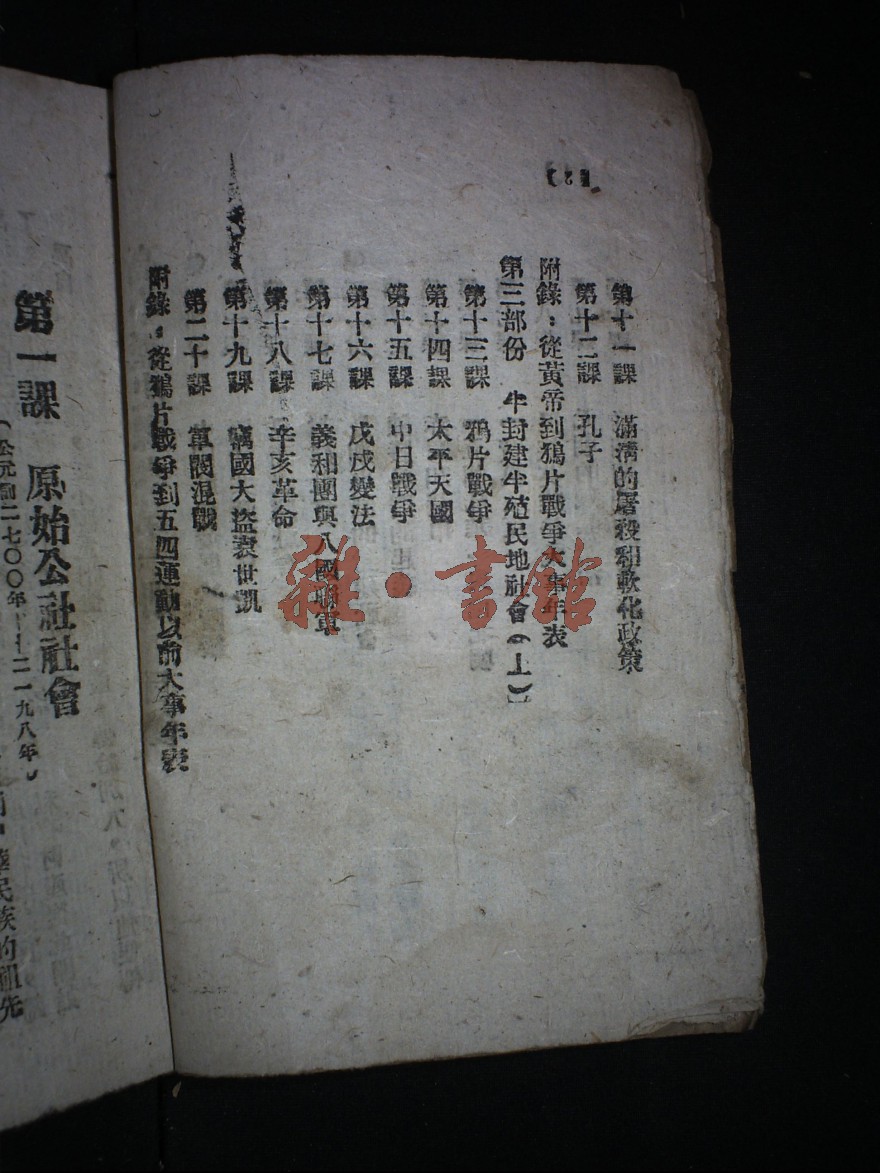 【2】
第十一課 滿清的屠殺和軟化政策
第十二課 孔子
附錄：從黃帝到鴉片戰爭大事年表
第三部份 半封建半殖民地社會（上）
第十三課 鴉片戰爭
第十四課 太平天國
第十五課 中日戰爭
第十六課 戊戌變法
第十七課 義和團與八國聯軍
第十八課 辛亥革命
第十九課 竊國大盜袁世凱
第二十課 軍閥混戰
附錄：從鴉片戰爭到五四運動以前大事年表
第一課 原始公社社會
（公元前二七〇〇年——二一九八年）
民族的祖先
雜·書館